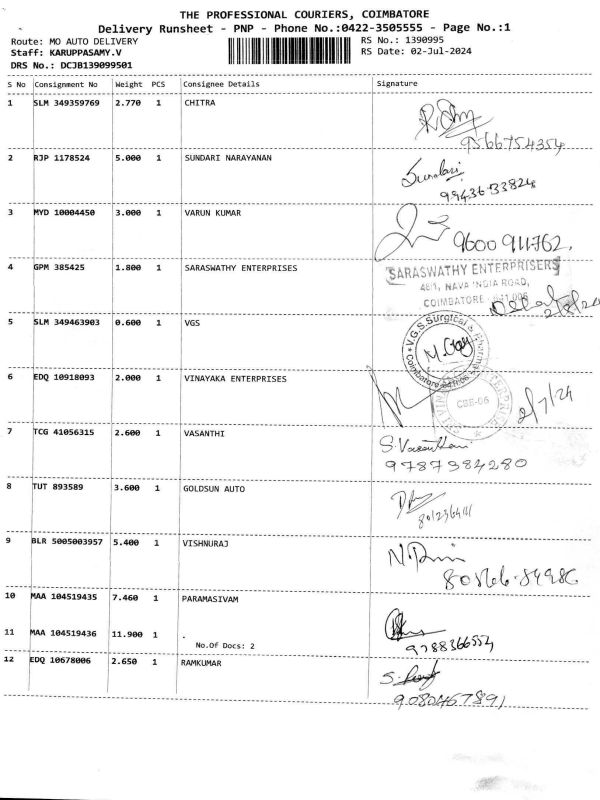 THE PROFESSIONAL COURIERS, COIMBATORE
Delivery Runsheet - PNP - Phone No.:0422-3505555 - Page No.:1
Route: MO AUTO DELIVERY RS No.: 1390995
Staff: KARUPPASAMY.V RS Date: 02-Jul-2024
DRS No.: DCJB139099501
S No Consignment No Weight PCS Consignee Details Signature
1 SLM 349359769 2.770 1 CHITRA
9566754354
2 RJP 1178524 5.000 1 SUNDARI NARAYANAN
Sundari
99436 33824
3 MYD 10004450 3.000 1 VARUN KUMAR
9600 911762.
4 GPM 385425 1.800 1 SARASWATHY ENTERPRISES
SARASWATHY ENTERPRISERS
48/1, NAVA INDIA ROAD,
COIMBATORE - 641 006
5 SLM 349463903 0.600 1 VGS
V.G.S. Surgical
Coimbatore
6 EDQ 10918093 2.000 1 VINAYAKA ENTERPRISES
CBE-06
2/7/24
7 TCG 41056315 2.600 1 VASANTHI
S. Vasanthari
9787384280
8 TUT 893589 3.600 1 GOLDSUN AUTO
9 BLR 5005003957 5.400 1 VISHNURAJ
80566-84986
10 MAA 104519435 7.460 1 PARAMASIVAM
11 MAA 104519436 11.900 1 .
No.Of Docs: 2
9788366554
12 EDQ 10678006 2.650 1 RAMKUMAR
9080467891